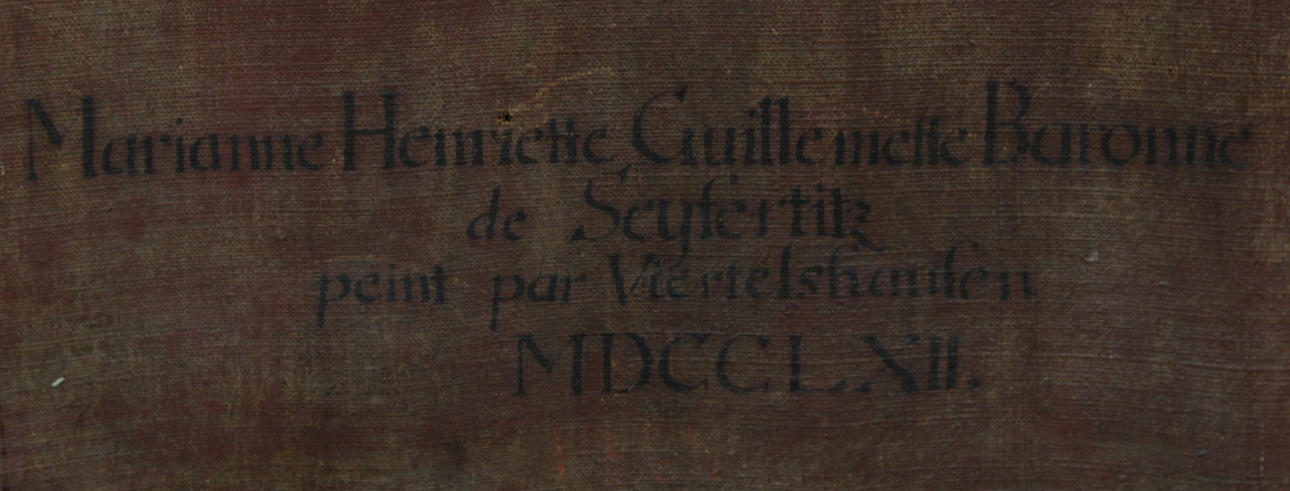 Marianne Henriette Guillemette Baronne
de Seyfertitz
peint par Viertelshausen
MDCCLXII.